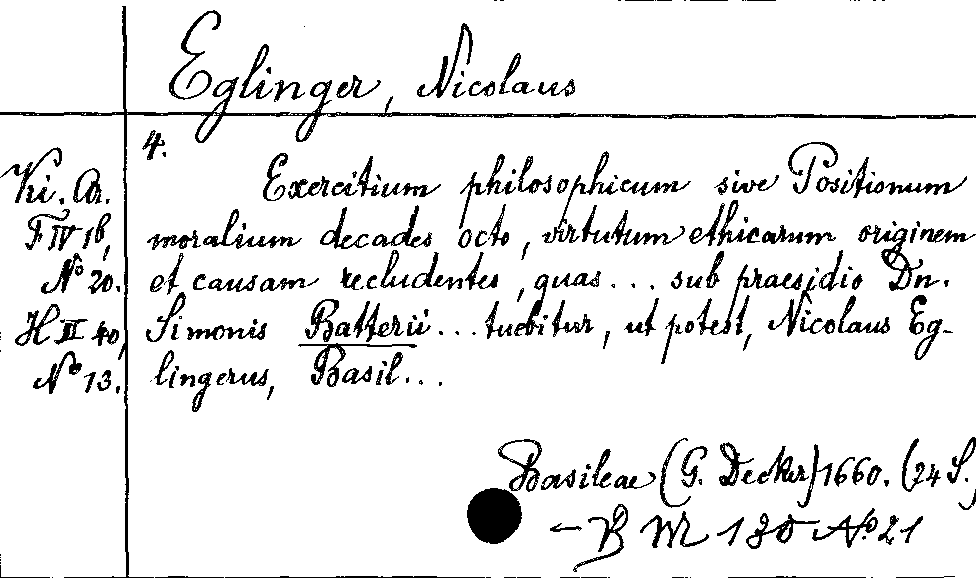 Eglinger, Nicolaus
4.
Ki. Ar.
F IV 16,
No 20.
H II 40,
No 13.
Exercitium philosophicum sive Positionum
moralium decades octo, virtutum ethicarum originem
et causam recludentes, quas... sub praesidio Dn.
Simonis Batterii... tuebitur, ut potest, Nicolaus Eg-
lingerus, Basil...
Basileae (G. Decker) 1660. (24 S.)
No 21